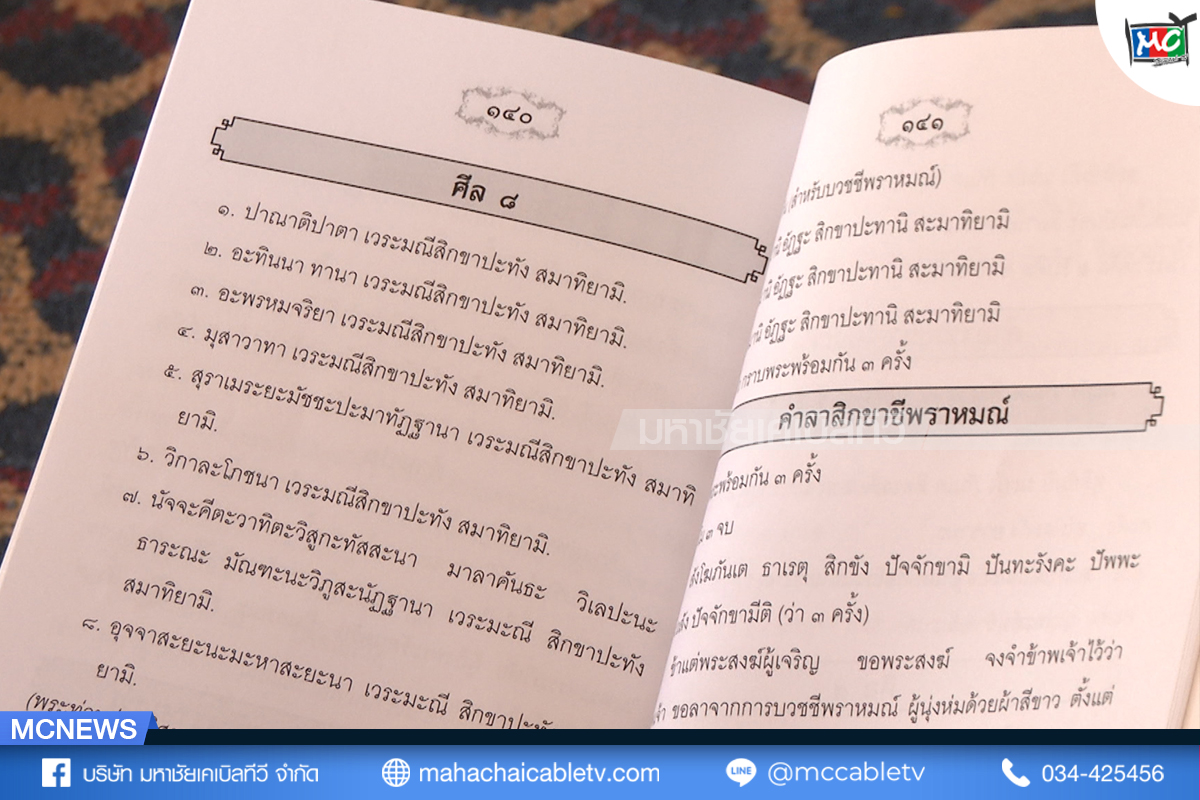 MC
๑๔๐
ศีล ๘
๑. ปาณาติปาตา เวระมณีสิกขาปะทัง สมาทิยามิ.
๒. อะทินนา ทานา เวระมณีสิกขาปะทัง สมาทิยามิ.
๓. อะพรหมจริยา เวระมณีสิกขาปะทัง สมาทิยามิ.
๔. มุสาวาทา เวระมณีสิกขาปะทัง สมาทิยามิ.
๕. สุราเมระยะมัชชะปะมาทัฏฐานา เวระมณีสิกขาปะทัง สมาทิ
ยามิ.
๖. วิกาละโภชนา เวระมณีสิกขาปะทัง สมาทิยามิ.
๗. นัจจะคีตะวาทิตะวิสูกะทัสสะนา มาลาคันธะ วิเลปะนะ
ธาระณะ มัณฑะนะวิภูสะนัฏฐานา เวระมะณี สิกขาปะทัง
สมาทิยามิ.
๘. อุจจาสะยะนะมะหาสะยะนา เวระมะณี สิกขาปะทัง
ยามิ.
๑๔๑
(สำหรับบวชชีพราหมณ์)
อัฏฐะ สิกขาปะทานิ สะมาทิยามิ
อัฏฐะ สิกขาปะทานิ สะมาทิยามิ
อัฏฐะ สิกขาปะทานิ สะมาทิยามิ
กราบพระพร้อมกัน ๓ ครั้ง
คำลาสิกขาชีพราหมณ์
มหาชัยเคเบิลทีวี
พร้อมกัน ๓ ครั้ง
๓ จบ
สังโฆภันเต ธาเรตุ สิกขัง ปัจจักขามิ ปันทะรังคะ ปัพพะ
ปัจจักขามีติ (ว่า ๓ ครั้ง)
ข้าแต่พระสงฆ์ผู้เจริญ ขอพระสงฆ์ จงจำข้าพเจ้าไว้ว่า
ขอลาจากการบวชชีพราหมณ์ ผู้นุ่งห่มด้วยผ้าสีขาว ตั้งแต่
MCNEWS
บริษัท มหาชัยเคเบิลทีวี จำกัด
mahachaicabletv.com
LINE @mccabletv
034-425456